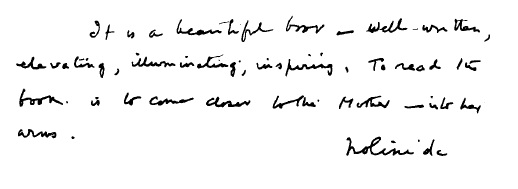 It is a beautiful book – well-written,
elevating, illuminating, inspiring. To read the
book is to come closer to the Mother – into her
arms.
Nolini da